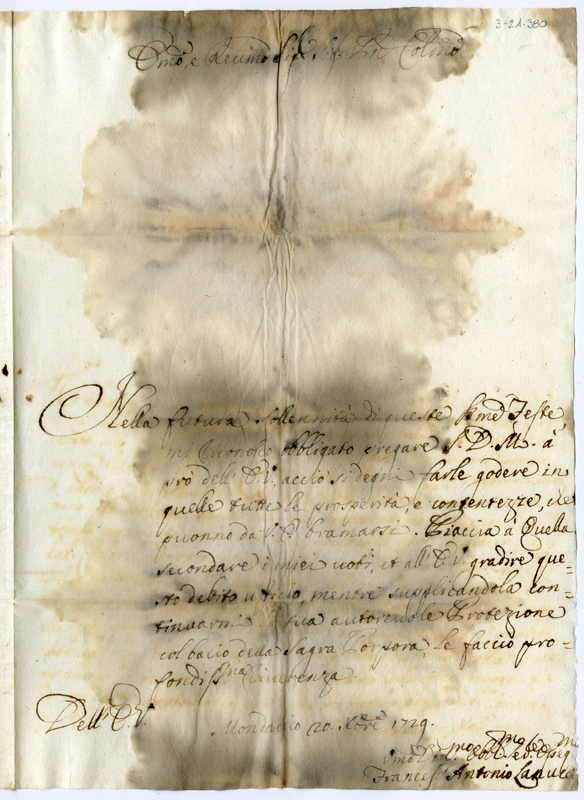 3-21-380
Em̃o, e Reṽmo Sig.r Sig.r Pñe Colmõ
Nella futura sollennità di queste Ssme Feste
mi conosco obbligato pregare S. D. M. à
prò dell' E. V., acciò si degni farle godere in
quelle tutte le prosperità, e contentezze, che
puonno da V. E. bramarsi. Piaccia à Quella
secondare i miei voti, et all' E. V. gradire que=
sto debito ufficio, mentre supplicandola con=
tinuarmi la sua autorevole Protezione
col bacio della Sagra Porpora, le faccio pro=
fondissma riverenza
Dell' E. V.
Mondavio 20. Xbre 1729.
Francesc Antonio